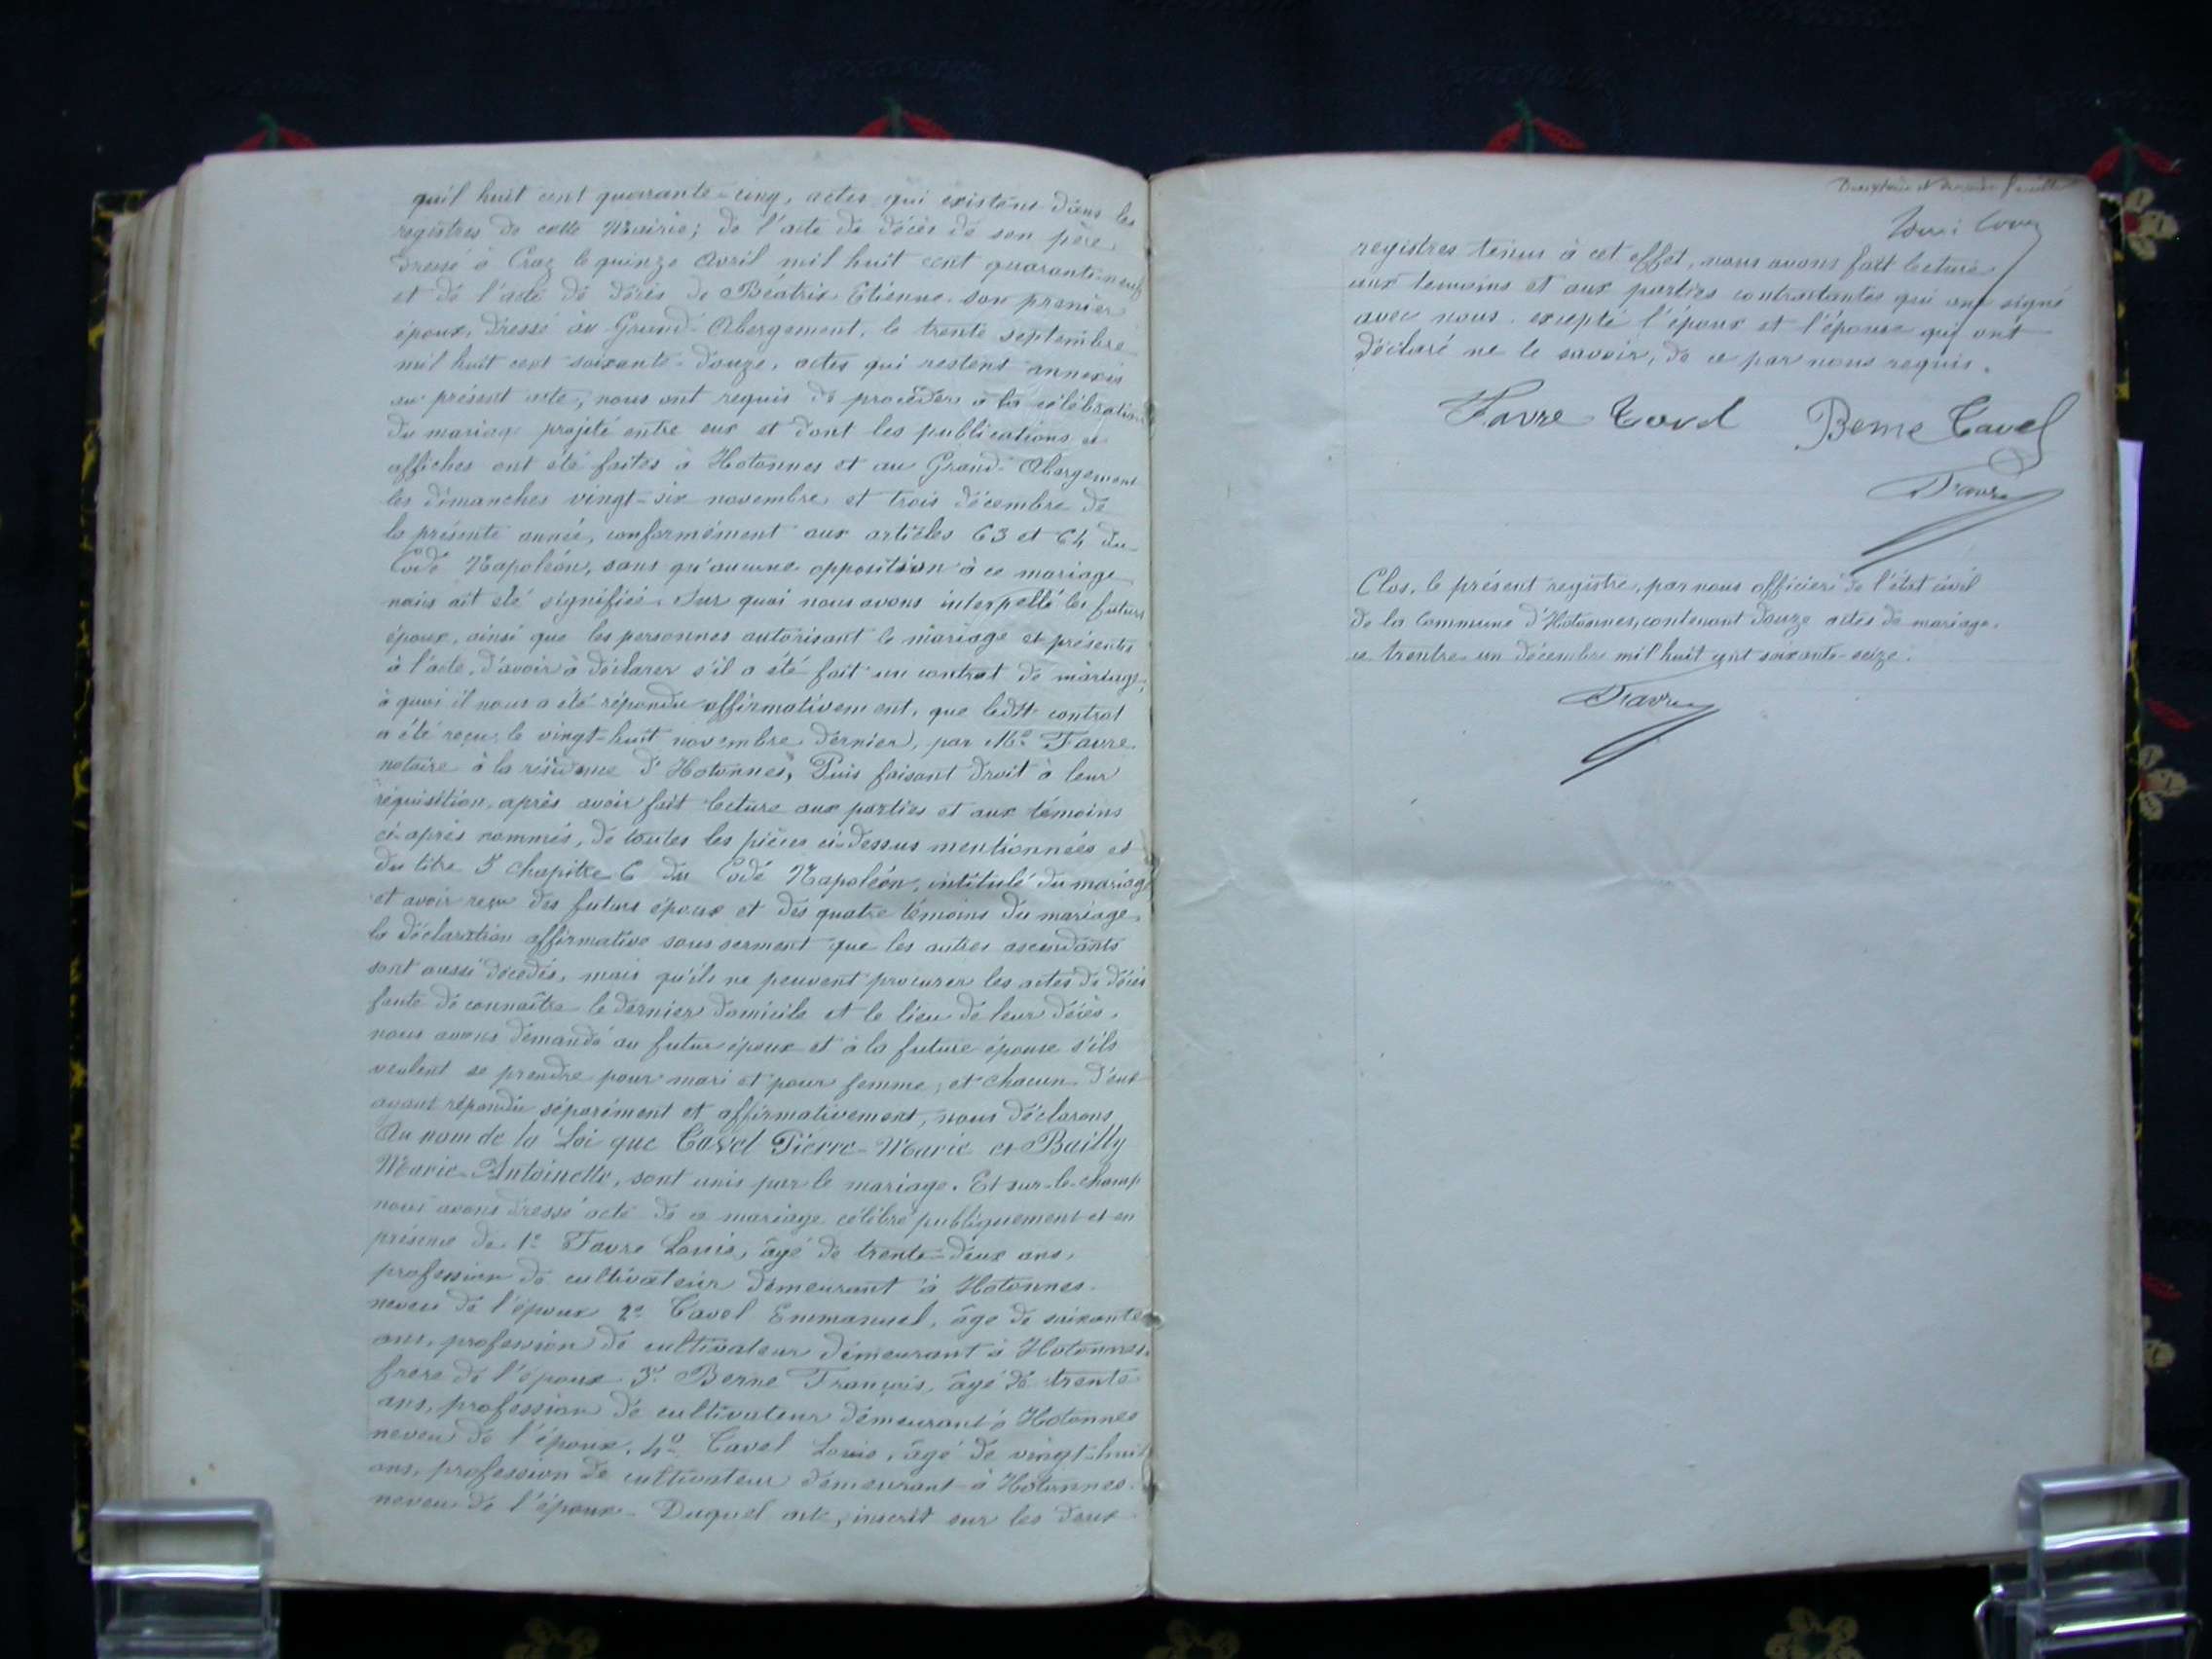 mil huit cent quarante-cinq, actes qui existent dans les
registres de cette Mairie; de l'acte de décès de son père
dressé à Craz le quinze Avril mil huit cent quarante-neuf
et de l'acte de décès de Béatrix Etienne son premier
époux, dressé au Grand-Abergement, le trente septembre
mil huit cent soixante-douze, actes qui restent annexés
au présent acte; nous ont requis de procéder à la célébration
du mariage projeté entre eux et dont les publications et
affiches ont été faites à Hotonnes et au Grand-Abergement
les dimanches vingt-six novembre et trois décembre de
la présente année, conformément aux articles 63 et 64 du
Code Napoléon, sans qu'aucune opposition à ce mariage
nous ait été signifiée. Sur quoi nous avons interpellé les futurs
époux, ainsi que les personnes autorisant le mariage et présentes
à l'acte, d'avoir à déclarer s'il a été fait un contrat de mariage;
à quoi il nous a été répondu affirmativement, que ledit contrat
a été reçu le vingt-huit novembre dernier, par Me Favre
notaire à la résidence d'Hotonnes, Puis faisant droit à leur
réquisition, après avoir fait lecture aux parties et aux témoins
ci-après nommés, de toutes les pièces ci-dessus mentionnées et
du titre 5 chapitre 6 du Code Napoléon, intitulé du mariage
et avoir reçu des futurs époux et des quatre témoins du mariage
la déclaration affirmative sous serment que les autres ascendants
sont aussi décédés, mais qu'ils ne peuvent procurer les actes de décès
faute de connaître le dernier domicile et le lieu de leur décès,
nous avons demandé au futur époux et à la future épouse s'ils
veulent se prendre pour mari et pour femme, et chacun d'eux
ayant répondu séparément et affirmativement, nous déclarons
Au nom de la Loi que Cavel Pierre-Marie et Bailly
Marie-Antoinette, sont unis par le mariage. Et sur-le-champ
nous avons dressé acte de ce mariage célébré publiquement et en
présence de 1º Favre Louis, âgé de trente-deux ans,
profession de cultivateur demeurant à Hotonnes.
neveu de l'époux 2º Cavel Emmanuel, âgé de soixante
ans, profession de cultivateur demeurant à Hotonnes.
frère de l'époux 3º Berne François, âgé de trente
ans, profession de cultivateur demeurant à Hotonnes
neveu de l'époux, 4º Cavel Louis, âgé de vingt-huit
ans, profession de cultivateur demeurant à Hotonnes.
neveu de l'époux - Duquel acte, inscrit sur les deux
registres tenus à cet effet, nous avons fait lecture
aux temoins et aux parties contractantes qui ont signé
avec nous. excepté l'époux et l'épouse qui ont
déclaré ne le savoir, de ce par nous requis.
Favre Cavel Berne Cavel
Favre
Clos, le présent registre, par nous officier de l'état civil
de la Commune d'Hotonnes, contenant douze actes de mariage.
ce trente-un décembre mil huit cent soixante-seize.
Favre